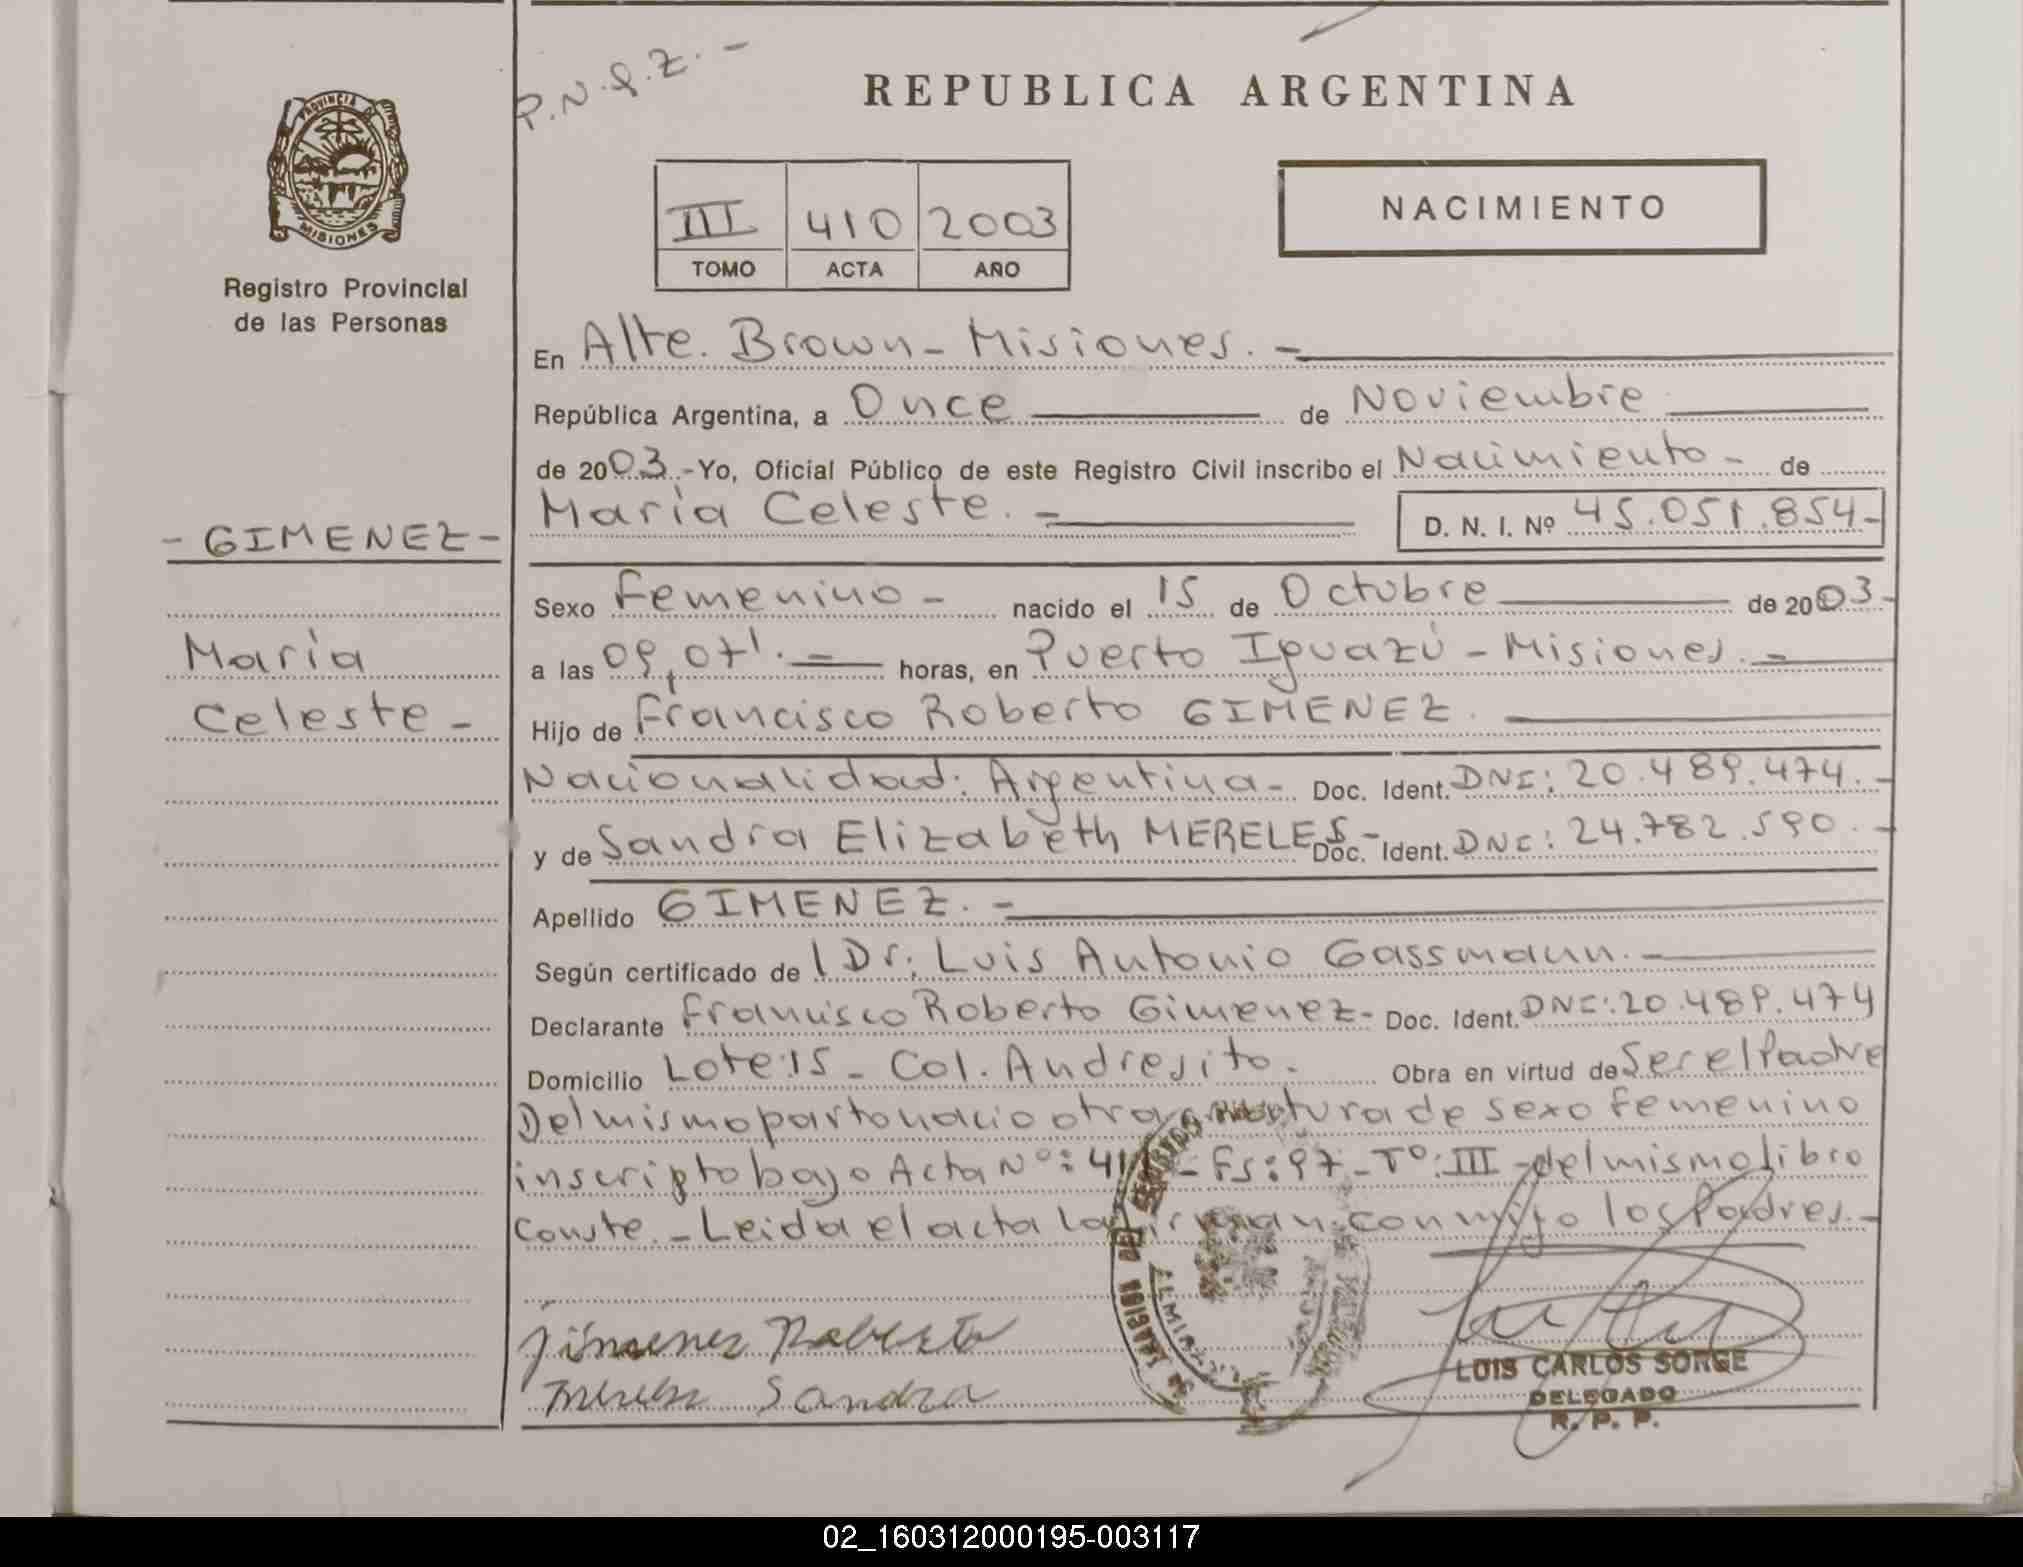 P.N.Q.Z.-
REPUBLICA ARGENTINA
PROVINCIA DE
MISIONES
III 410 2003
TOMO ACTA AÑO
NACIMIENTO
Registro Provincial
de las Personas
En Alte. Brown - Misiones. -
República Argentina, a Once de Noviembre
de 2003.- Yo, Oficial Público de este Registro Civil inscribo el Nacimiento - de
María Celeste. - D. N. I. Nº 45.051.854-
- GIMENEZ -
Sexo Femenino - nacido el 15 de Octubre de 2003-
María
a las 09,07'. - horas, en Puerto Iguazú - Misiones. -
Celeste -
Hijo de Francisco Roberto GIMENEZ.
Nacionalidad: Argentina - Doc. Ident. DNI: 20.489.474. -
y de Sandra Elizabeth MERELES - Doc. Ident. DNI: 24.782.590. -
Apellido GIMENEZ. -
Según certificado de l Dr: Luis Antonio Gassmann. -
Declarante Francisco Roberto Gimenez - Doc. Ident. DNI: 20.489.474
Domicilio Lote 15 - Col. Andresito. Obra en virtud de Ser el Padre
Del mismo parto nacio otra criatura de sexo femenino
inscripto bajo Acta Nº: 411 - Fs: 97 - Tº: III - del mismo libro
Conste. - Leida el acta la firman conmigo los Padres. -
Jimenez Roberto
Mereles Sandra
LUIS CARLOS SORGE
DELEGADO
R. P. P.
02_160312000195-003117